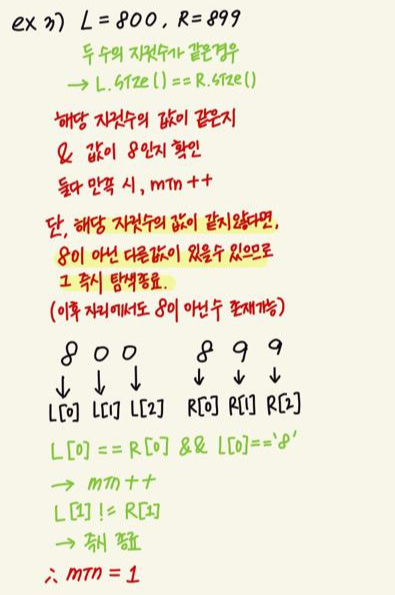 ex 3) L = 800, R = 899
두 수의 자릿수가 같은경우
→ L.size() == R.size()
해당 자릿수의 값이 같은지
& 값이 8인지 확인
둘다 만족 시, min ++
단, 해당 자릿수의 값이 같지않다면,
8이 아닌 다른값이 있을수 있으므로
그 즉시 탐색종료.
(이후 자리에서도 8이 아닌수 존재가능)
8 0 0 8 9 9
↓ ↓ ↓ ↓ ↓ ↓
L[0] L[1] L[2] R[0] R[1] R[2]
L[0] == R[0] && L[0]=='8'
→ min ++
L[1] != R[1]
→ 즉시 종료
∴ min = 1